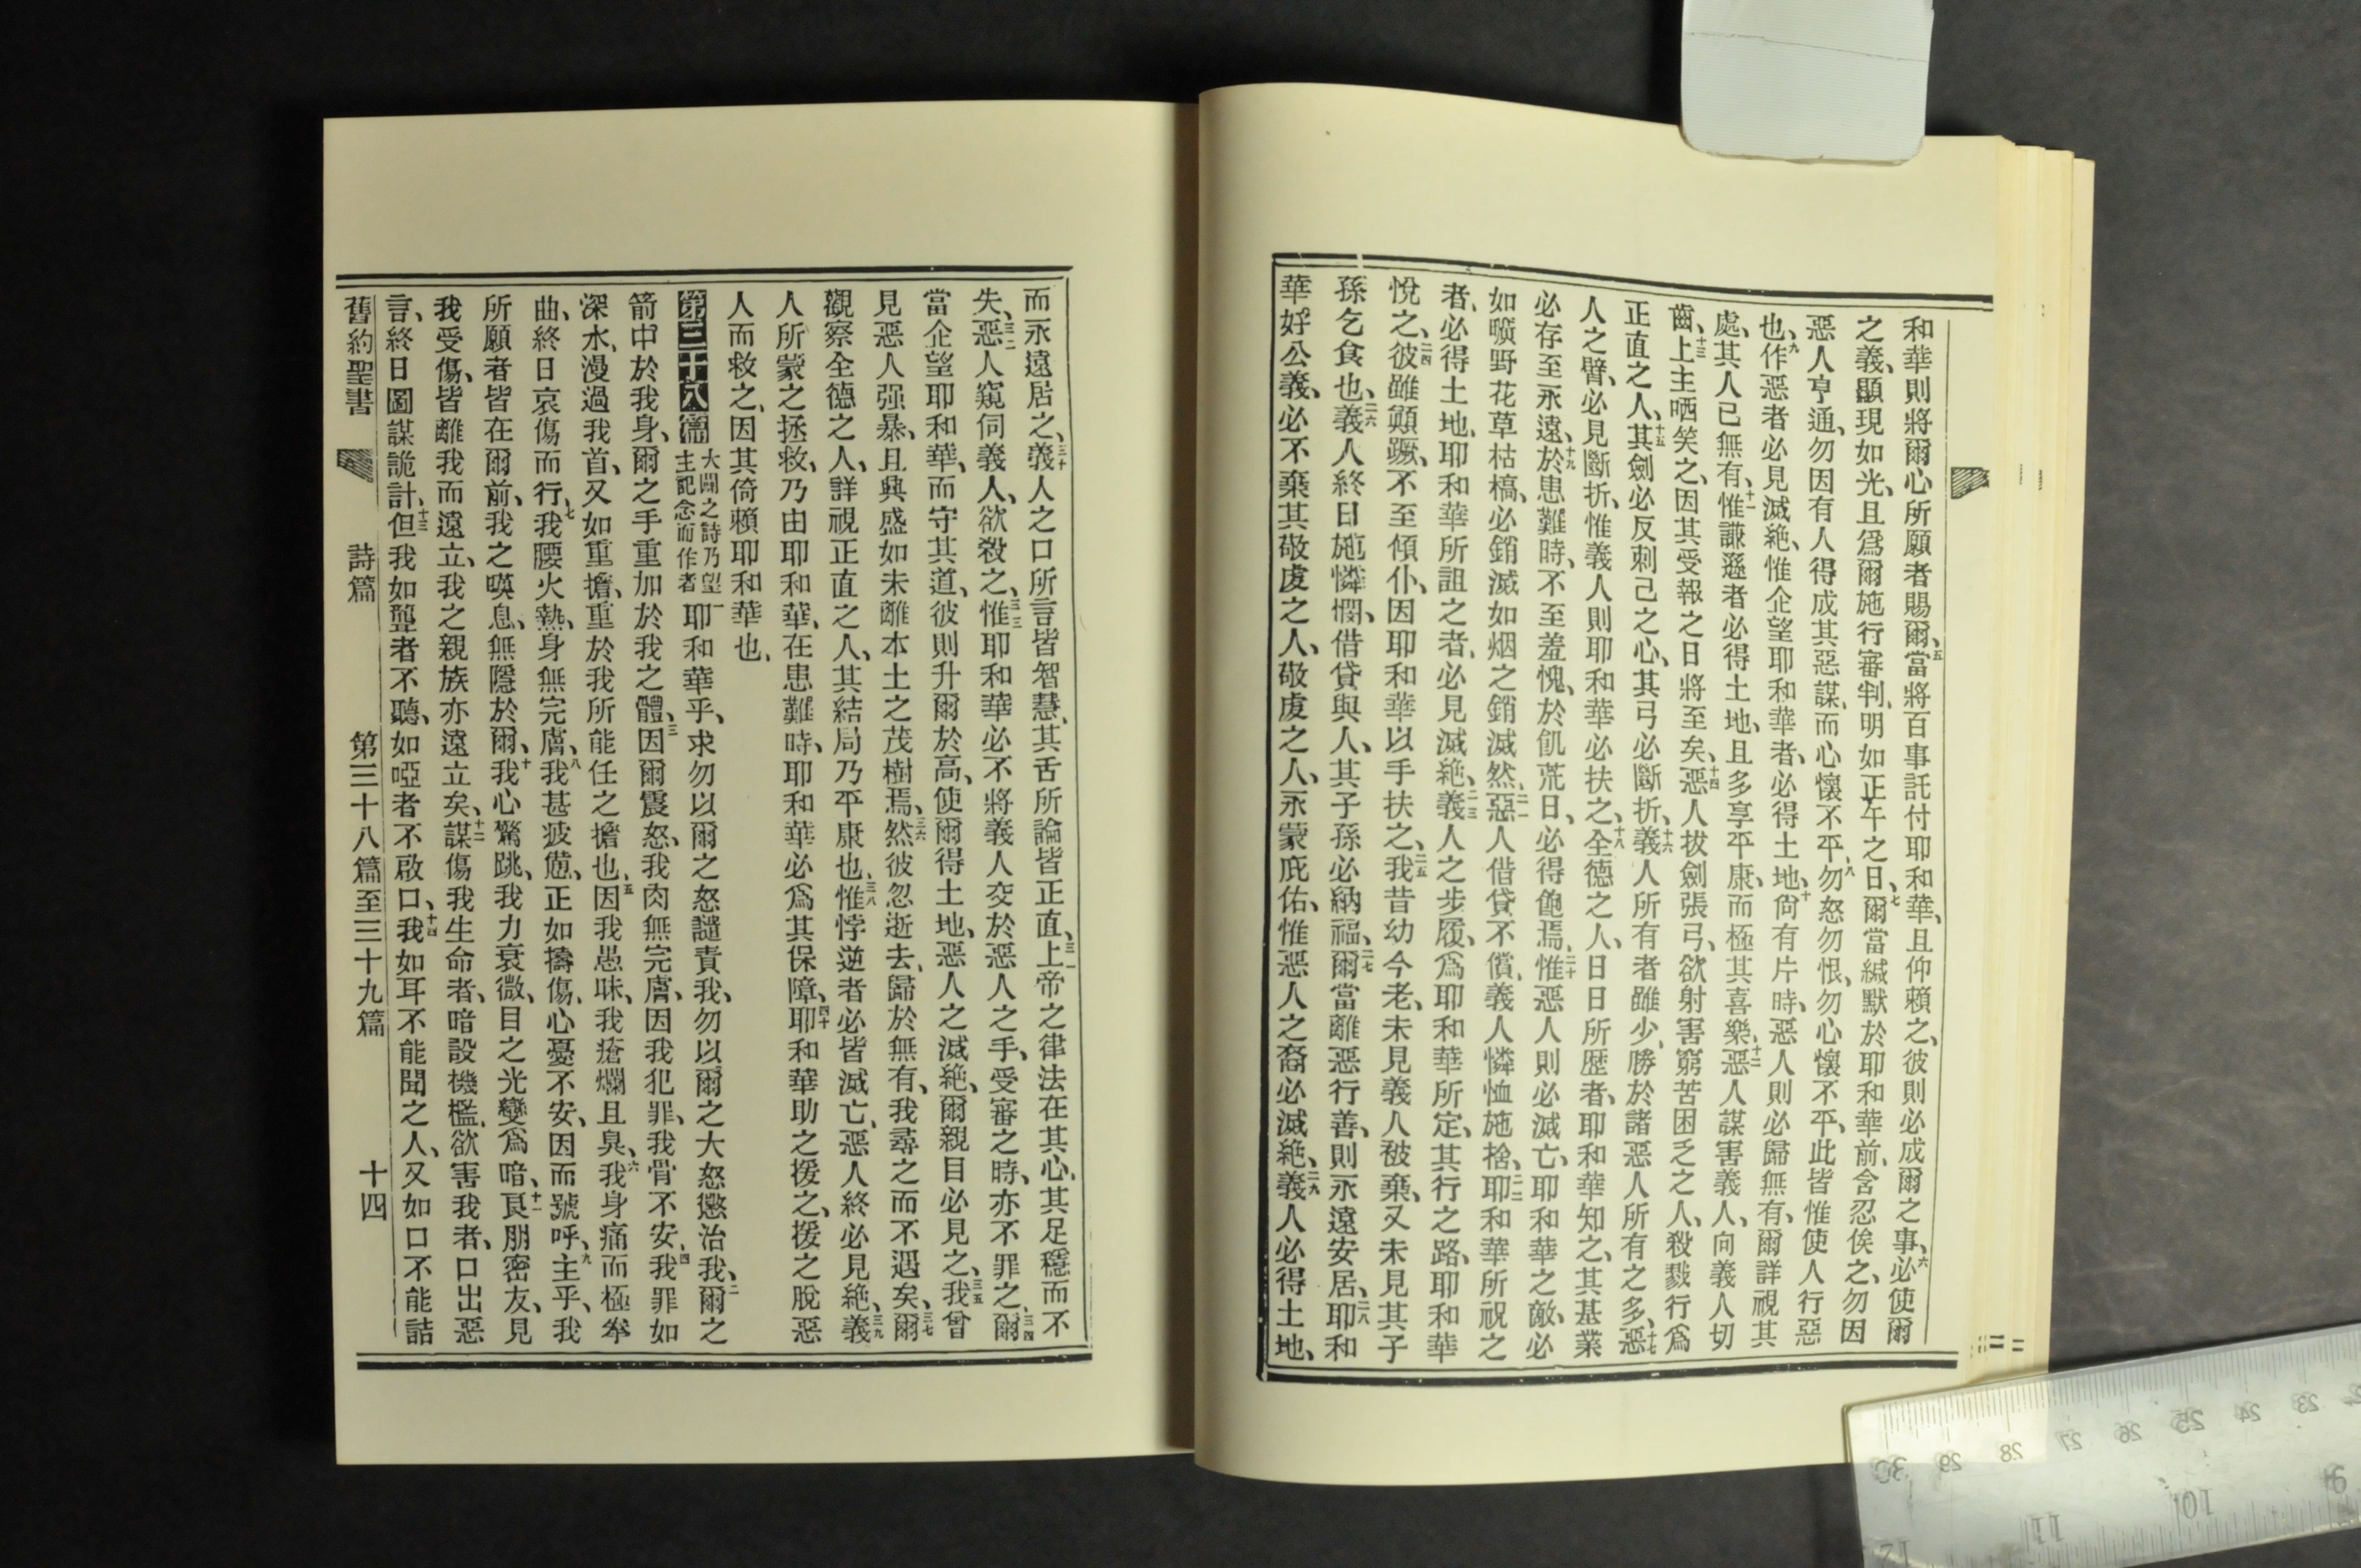 和華則將爾心所願者賜爾、五當將百事託付耶和華、且仰賴之、彼則必成爾之事、六必使爾
之義、顯現如光、且爲爾施行審判、明如正午之日、七爾當緘默於耶和華前、含忍俟之、勿因
惡人亨通、勿因有人得成其惡謀、而心懷不平、八勿怒勿恨、勿心懷不平、此皆惟使人行惡
也、九作惡者必見滅絶、惟企望耶和華者、必得土地、十尙有片時、惡人則必歸無有、爾詳視其
處、其人已無有、十一惟謙遜者必得土地、且多享平康、而極其喜樂、十二惡人謀害義人、向義人切
齒、十三上主哂笑之、因其受報之日將至矣、十四惡人拔劍張弓、欲射害窮苦困乏之人、殺戮行爲
正直之人、十五其劍必反刺己之心、其弓必斷折、十六義人所有者雖少、勝於諸惡人所有之多、十七惡
人之臂、必見斷折、惟義人則耶和華必扶之、十八全德之人、日日所歷者、耶和華知之、其基業
必存至永遠、十九於患難時、不至羞愧、於飢荒日、必得飽焉、二十惟惡人則必滅亡、耶和華之敵、必
如曠野花草枯槁、必銷滅如烟之銷滅然、二一惡人借貸不償、義人憐恤施捨、二二耶和華所祝之
者、必得土地、耶和華所詛之者、必見滅絶、二三義人之步履、爲耶和華所定、其行之路、耶和華
悅之、二四彼雖顚蹶、不至傾仆、因耶和華以手扶之、二五我昔幼今老、未見義人被棄、又未見其子
孫乞食也、二六義人終日施憐憫、借貸與人、其子孫必納福、二七爾當離惡行善、則永遠安居、二八耶和
華好公義、必不棄其敬虔之人、敬虔之人、永蒙庇佑、惟惡人之裔必滅絶、二九義人必得土地、
而永遠居之、三十義人之口所言皆智慧、其舌所論皆正直、三一上帝之律法在其心、其足穩而不
失、三二惡人窺伺義人、欲殺之、三三惟耶和華必不將義人交於惡人之手、受審之時、亦不罪之、三四爾
當企望耶和華、而守其道、彼則升爾於高、使爾得土地、惡人之滅絶、爾親目必見之、三五我曾
見惡人强暴、且興盛如未離本土之茂樹焉、三六然彼忽逝去、歸於無有、我尋之而不遇矣、三七爾
觀察全德之人、詳視正直之人、其結局乃平康也、三八惟悖逆者必皆滅亡、惡人終必見絶、三九義
人所蒙之拯救、乃由耶和華、在患難時、耶和華必爲其保障、四十耶和華助之援之、援之脫惡
人而救之、因其倚賴耶和華也、
第三十八篇 大闢之詩乃望主記念而作者 一耶和華乎、求勿以爾之怒譴責我、勿以爾之大怒懲治我、二爾之
箭中於我身、爾之手重加於我之體、三因爾震怒、我肉無完膚、因我犯罪、我骨不安、四我罪如
深水、漫過我首、又如重擔、重於我所能任之擔也、五因我愚昧、我瘡爛且臭、六我身痛而極拳
曲、終日哀傷而行、七我腰火熱、身無完膚、八我甚疲憊、正如擣傷、心憂不安、因而號呼、九主乎、我
所願者皆在爾前、我之嘆息、無隱於爾、十我心驚跳、我力衰微、目之光變爲暗、十一良朋密友、見
我受傷、皆離我而遠立、我之親族亦遠立矣、十二謀傷我生命者、暗設機檻、欲害我者、口出惡
言、終日圖謀詭計、十三但我如聾者不聽、如啞者不啟口、十四我如耳不能聞之人、又如口不能詰
舊約聖書 詩篇 第三十八篇至三十九篇 十四